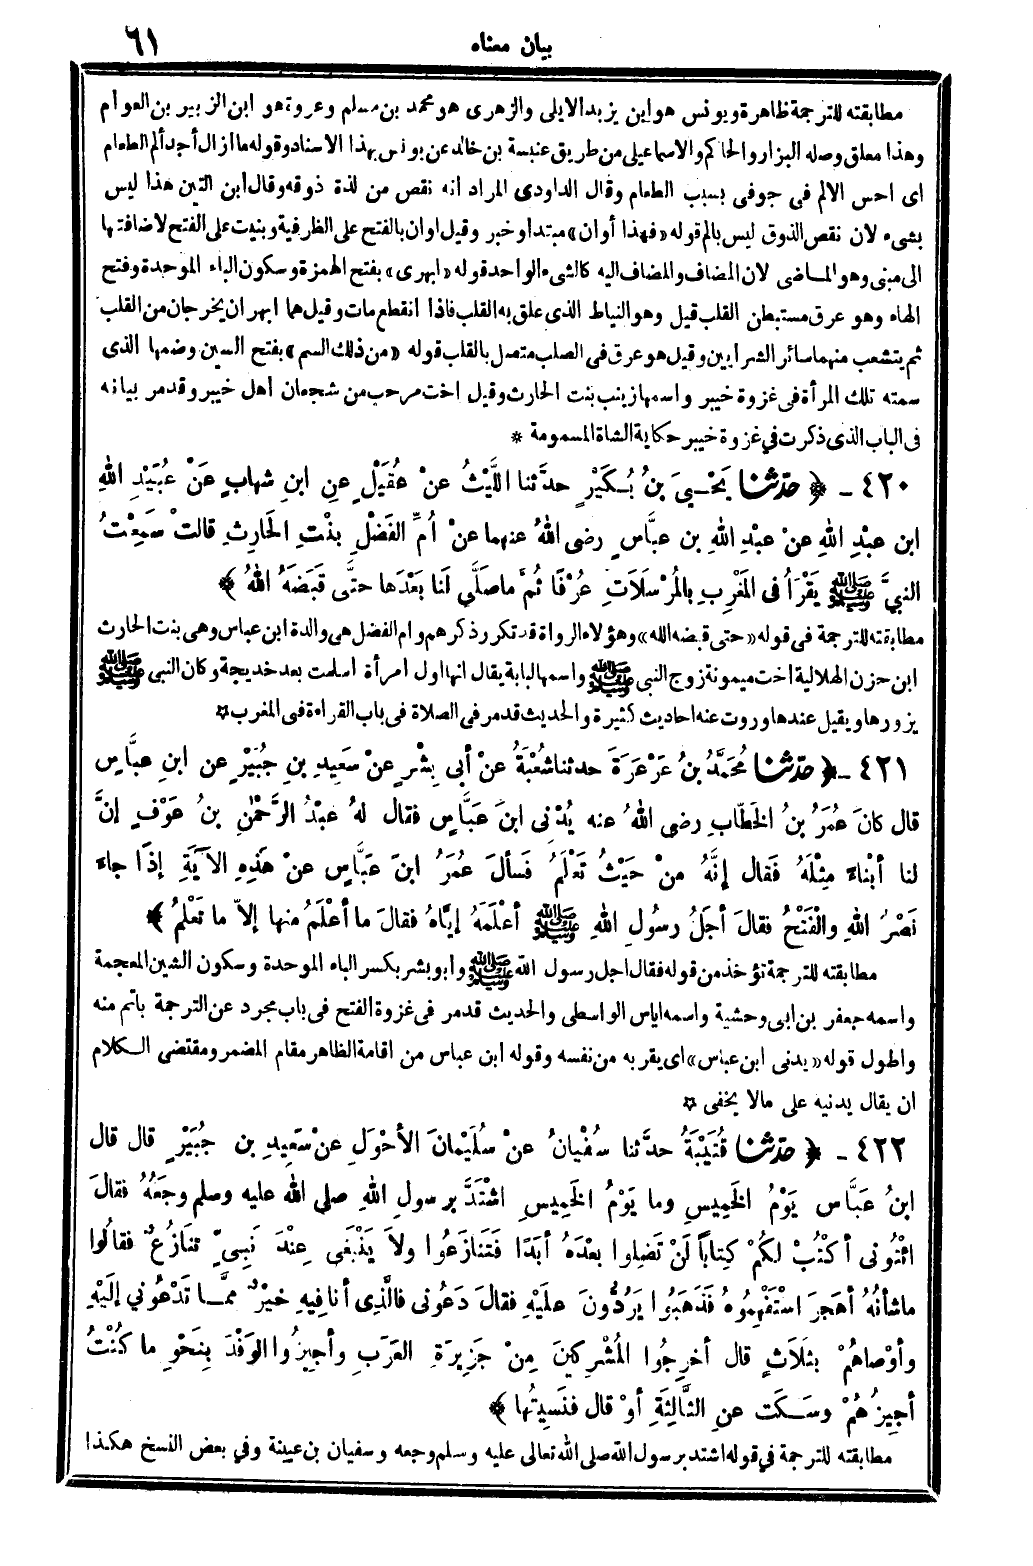 ٦١
بيان معناه
مطابقته للترجمة ظاهرة ويونس هو ابن يزيد الايلى والزهرى هو محمد بن مسلم وعروة هو ابن الزبير بن العوام
وهذا معلق وصله البزار والحاكم والاسماعيلى من طريق عنبسة بن خالد عن يونس بهذا الاسناد وقوله ما ازال أجد ألم الطعام
اى احس الالم فى جوفى بسبب الطعام وقال الداودى المراد انه نقص من لذة ذوقه وقال ابن التين هذا ليس
بشىء لان نقص الذوق ليس بالم قوله «فهذا أوان» مبتدا وخبر وقيل اوان بالفتح على الظرفية وبنيت على الفتح لاضافتها
الى مبنى وهو الماضى لان المضاف والمضاف اليه كالشىء الواحد قوله «ابهرى» بفتح الهمزة وسكون الباء الموحدة وفتح
الهاء وهو عرق مستبطن القلب قيل وهو النياط الذى علق به القلب فاذا انقطع مات وقيل هما ابهران يخرجان من القلب
ثم يتشعب منهما سائر الشرايين وقيل هو عرق فى الصلب متصل بالقلب قوله «من ذلك السم» بفتح السين وضمها الذى
سمته تلك المرأة فى غزوة خيبر واسمها زينب بنت الحارث وقيل اخت مرحب من شجعان أهل خيبر وقد مر بيانه
فى الباب الذى ذكرت في غزوة خيبر حكاية الشاة المسمومة *
٤٢٠ - ﴿ حدّثنا يَحْيَ بنُ بُكَيْرٍ حدثنا اللَّيْثُ عنْ عُقَيْلٍ عنِ ابنِ شهابٍ عنْ عُبَيْدِ اللهِ
ابن عبْدِ اللهِ عنْ عبْدِ اللهِ بن عبَّاسٍ رضى اللهُ عنهما عنْ أُمِّ الفَضْلِ بنْتِ الحَارِثِ قالتْ سَمِعْتُ
النبيَّ ﷺ يَقْرَأُ فى المَغْرِبِ بالمُرْسَلَاتِ عُرْفًا ثُمَّ ماصَلَّي لَنا بَعْدَها حتَّى قَبَضَهُ اللهُ ﴾
مطابقته للترجمة فى قوله «حتى قبضه الله» وهؤلاء الرواة قد تكرر ذكرهم وام الفضل هى والدة ابن عباس وهى بنت الحارث
ابن حزن الهلالية اخت ميمونة زوج النبى ﷺ واسمها لبابة يقال انها اول امرأة أسلمت بعد خديجة وكان النبى ﷺ
يزورها ويقيل عندها وروت عنه احاديث كثيرة والحديث قد مر فى الصلاة فى باب القراءة فى المغرب *
٤٢١ - ﴿ حدّثنا مُحَمَّدُ بنُ عَرْعَرَةَ حدثنا شُعْبَةُ عنْ أبي بِشْرٍ عنْ سَعِيدِ بنِ جُبَيْرٍ عنِ ابنِ عبَّاسٍ
قال كانَ عُمَرُ بنُ الخَطَّابِ رضى اللهُ عنه يُدْنِى ابنَ عَبَّاسٍ فقال لهُ عبْدُ الرَّحْمٰنِ بنُ عَوْفٍ إنَّ
لنا أبْناءً مِثْلَهُ فَقال إنَّهُ منْ حَيْثُ تَعْلَمُ فَسألَ عُمَرُ ابنَ عَبَّاسٍ عنْ هَذِهِ الآيَةِ إذَا جاءَ
نَصْرُ اللهِ والْفَتْحُ فقالَ أجَلُ رسُولِ اللهِ ﷺ أعْلَمَهُ إيَّاهُ فقالَ ما أعْلَمُ منها إلاّ ما تَعْلَمُ ﴾
مطابقته للترجمة تؤخذ من قوله فقال اجل رسول الله ﷺ وابو بشر بكسر الباء الموحدة وسكون الشين المعجمة
واسمه جعفر بن ابى وحشية واسمه اياس الواسطى والحديث قد مر فى غزوة الفتح فى باب مجرد عن الترجمة باتم منه
واطول قوله «يدنى ابن عباس» اى يقربه من نفسه وقوله ابن عباس من اقامة الظاهر مقام المضمر ومقتضى الكلام
ان يقال يدنيه على مالا يخفى *
٤٢٢ - ﴿ حدّثنا قُتَيْبَةُ حدَّثنا سُفْيانُ عنْ سُلَيْمانَ الأحْوَلِ عنْ سَعِيدِ بنِ جُبَيْرٍ قال قال
ابنُ عَبَّاسٍ يَوْمُ الخَمِيسِ وما يَوْمُ الخَمِيسِ اشْتَدَّ برسولِ اللهِ صلى الله عليه وسلم وجَعُهُ فقالَ
ائْتُونِى أكْتُبْ لكُمْ كِتاباً لَنْ تَضِلوا بعْدَهُ أبَدًا فَتَنازَعُوا ولاَ يَنْبَغِى عِنْدَ نَبِيٍّ تنازُعٌ فقالُوا
ماشأنُهُ أهَجَرَ اسْتَفْهِمُوهُ فَذَهَبُوا يَرُدُّونَ علَيْهِ فقالَ دَعُونِى فالَّذِى أنا فِيهِ خَيْرٌ ممَّا تَدْعُونِي إلَيْهِ
وأوْصاهُمْ بثَلاَثٍ قال أخرِجُوا المُشْرِكينَ مِنْ جَزِيرَةِ العَرَبِ وأجِيزُوا الوَفْدَ بِنَحْوِ ما كُنْتُ
أجِيزُهُمْ وسَكَتَ عنِ الثَّالِثَةِ أوْ قال فنَسِيتُها ﴾
مطابقته للترجمة في قوله اشتد برسول الله صلى الله تعالى عليه وسلم وجعه وسفيان بن عيينة وفي بعض النسخ هكذا